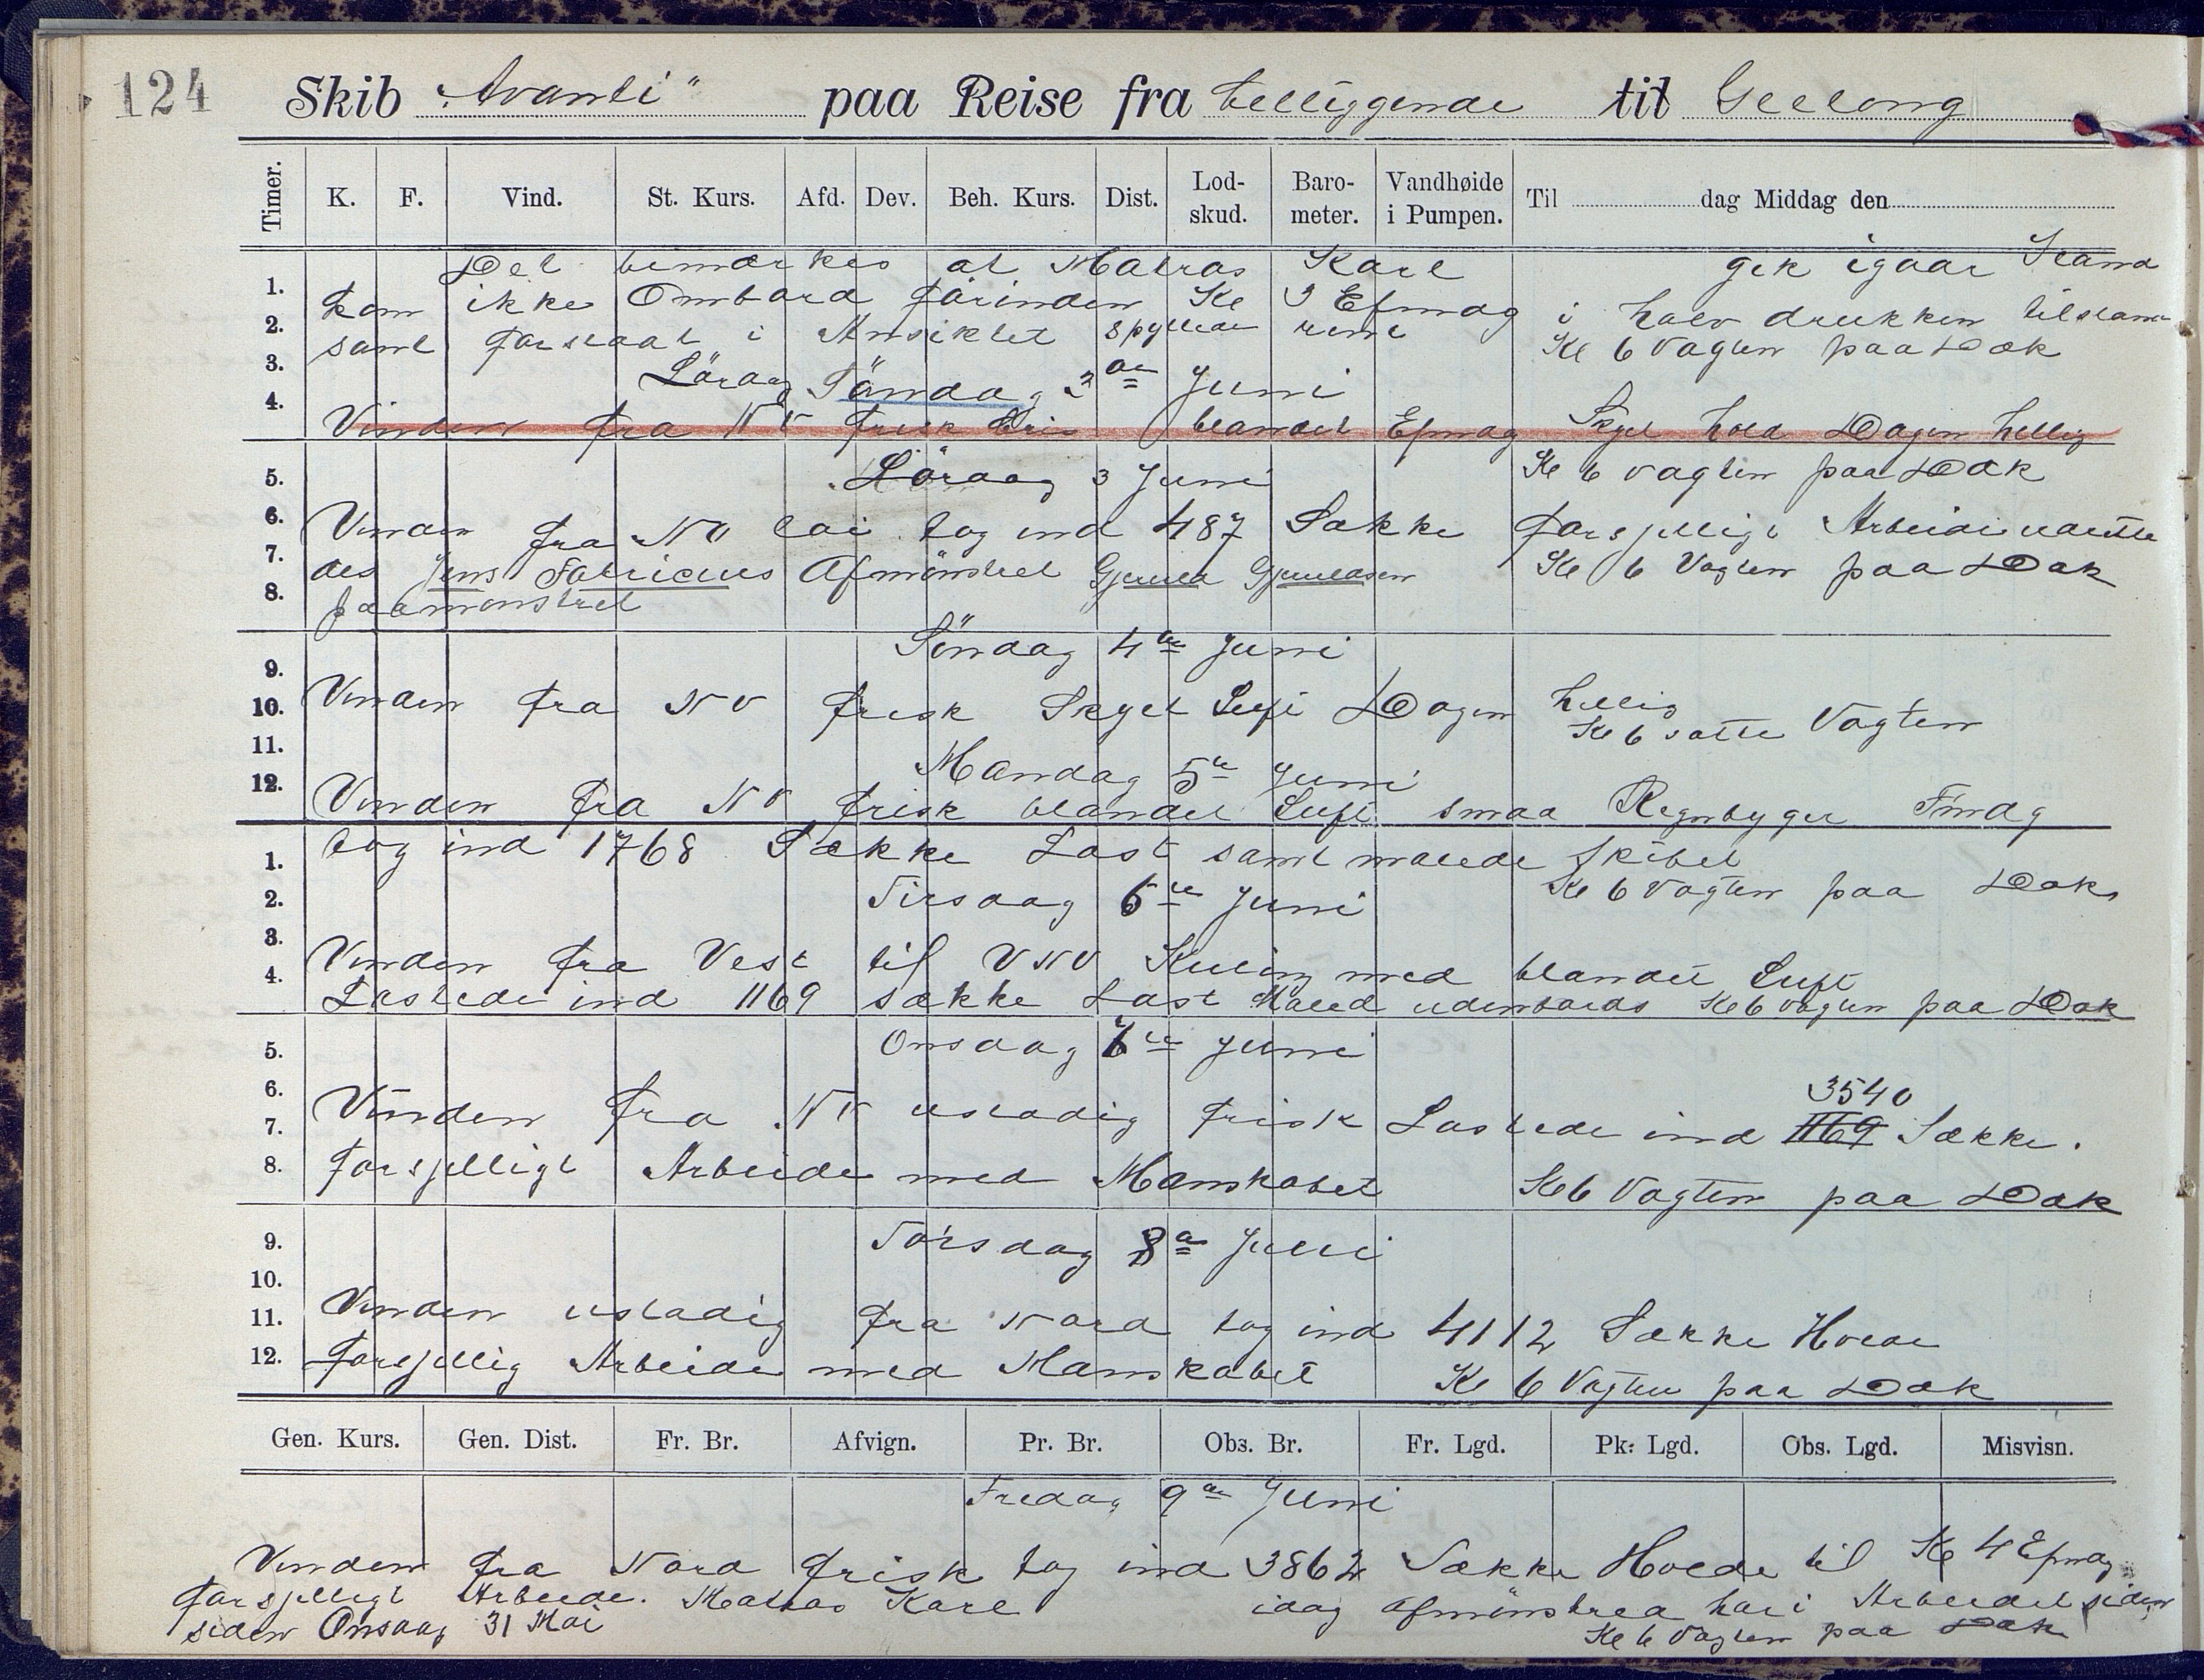 124
Skib "Avanti" paa Reise fra belliggende til Geelong
Timer. K. F. Vind. St. Kurs. Afd. Dev. Beh. Kurs. Dist. Lod-skud. Baro-meter. Vandhøide i Pumpen. Til dag Middag den
Det bemærkes at Matros Karl gik igaar Iland
1. kom ikke Ombord förinden Kl 3 Efmdg i halv drukken tilstand
2. samt forslaat i Ansiktet Kl 6 Vagten paa Dæk
3. Lördag Söndag 2den Juni
4. Vinden fra NV frisk blandet Efmdg Skyet hold Dagen hellig
5. Lördag 3 Juni Kl 6 vagten paa Dæk
6. Vinden fra NV tog ind 487 Sække forsjelligt Arbeide udrette
7. des Jens Fabricius Afmönstret Kl 6 Vagten paa Dæk
8. paamönstret
Söndag 4de Juni
9.
10. Vinden fra NV frisk Skyet Luft Dagen hellig
11. Kl 6 satte Vagten
Mandag 5te Juni
12. Vinden fra NV frisk blandet Luft smaa Regnbyger Fmdg
1. tog ind 1768 Sække Last samt malede Skibet
2. Tirsdag 6te Juni Kl 6 vagten paa Dæk
3. Vinden fra Vest til VNV Kuling med blandet Luft
4. Lastede ind 1169 sække Last Maled udenbords Kl 6 vagten paa Dæk
5. Onsdag 7de Juni
6. 3540
7. Vinden fra NV ustadig frisk Lastede ind 1169 Sække.
8. forsjelligt Arbeide med Manskabet Kl 6 Vagten paa Dæk
9. Torsdag 8de Juni
10.
11. Vinden ustadig fra Nord tog ind 4112 Sække Hvede
12. forsjellig Arbeide med Manskabet Kl 6 Vagten paa Dæk
Gen. Kurs. Gen. Dist. Fr. Br. Afvign. Pr. Br. Obs. Br. Fr. Lgd. Pk. Lgd. Obs. Lgd. Misvisn.
Fredag 9de Juni
Vinden fra Nord frisk tog ind 3862 Sække Hvede til Kl 4 Efmdg
forsjelligt Arbeide. Matros Karl idag afmönstred har i Arbeidet siden
siden Onsdag 31 Mai Kl 6 Vagten paa Dæk